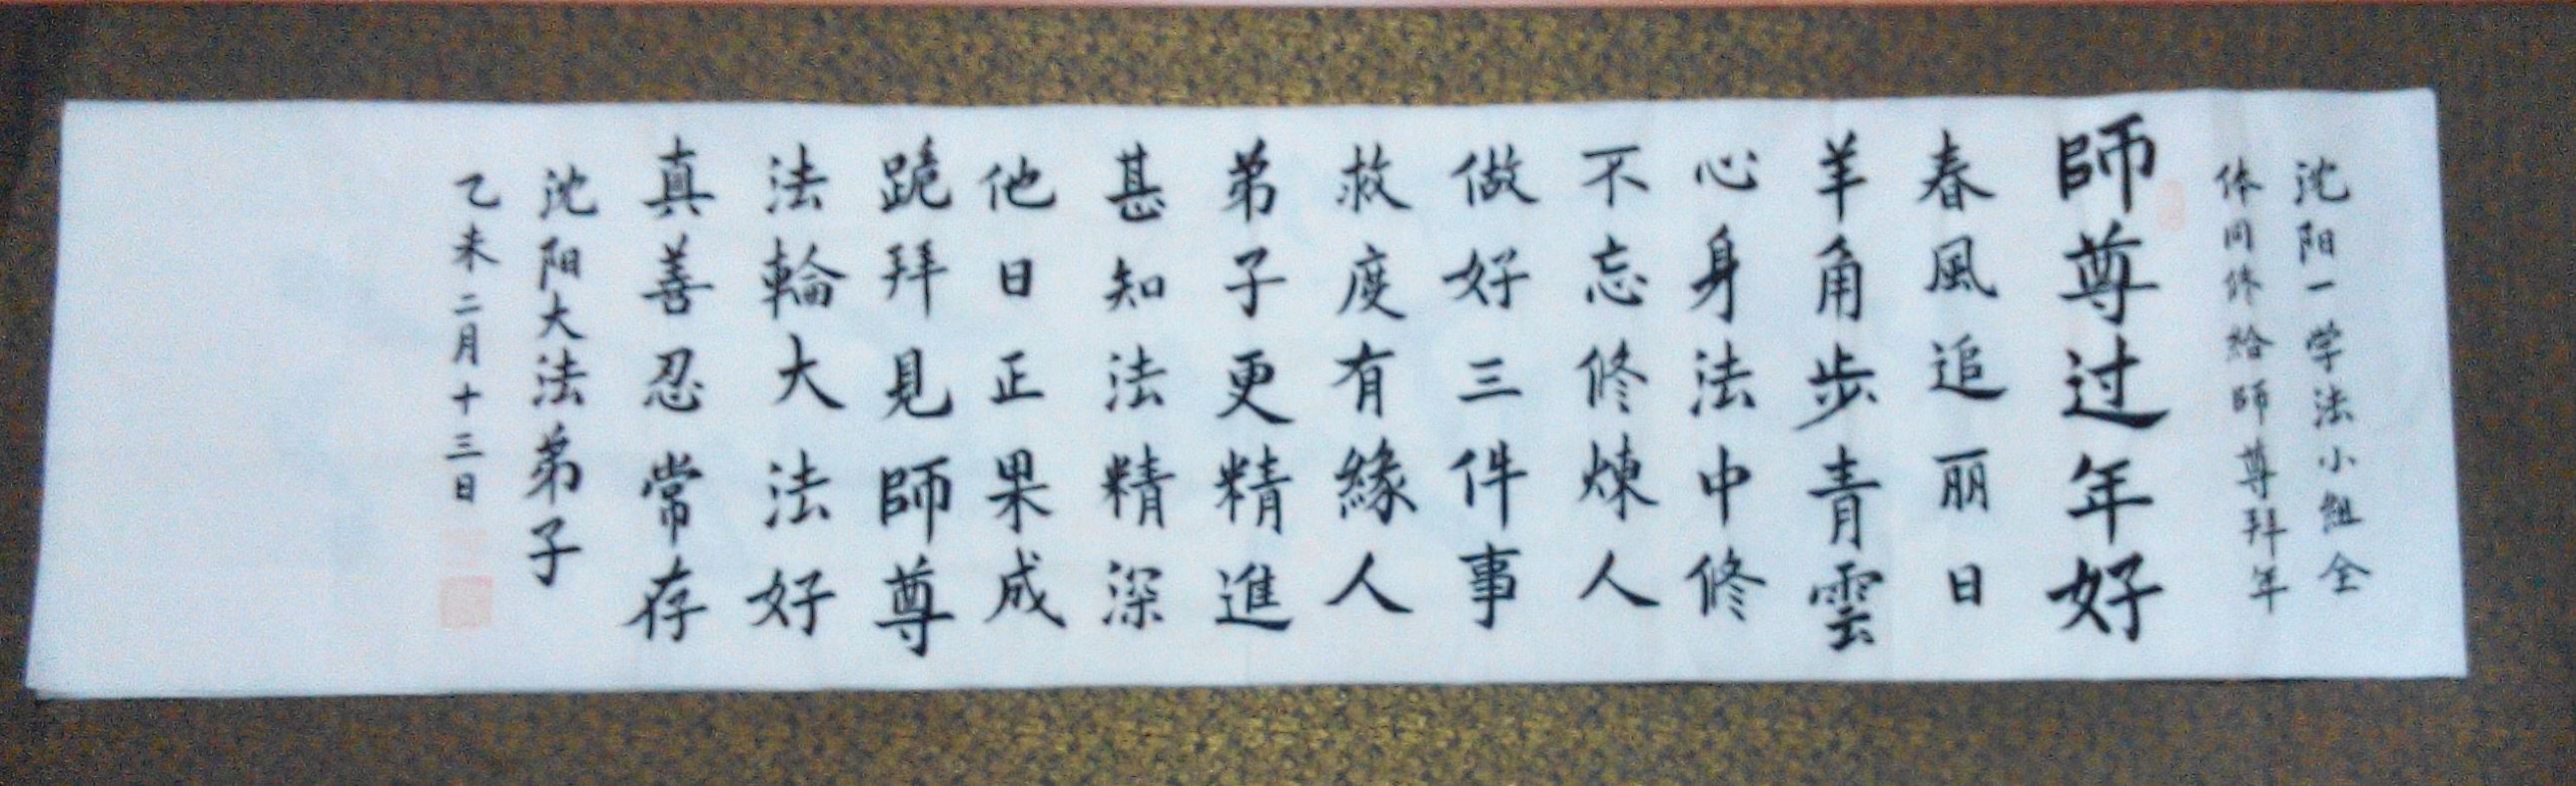 沈阳一学法小组全
体同修给師尊拜年
師尊过年好
春風追丽日
羊角步青雲
心身法中修
不忘修煉人
做好三件事
救度有緣人
弟子更精進
甚知法精深
他日正果成
跪拜見師尊
法輪大法好
真善忍常存
沈阳大法弟子
乙未二月十三日